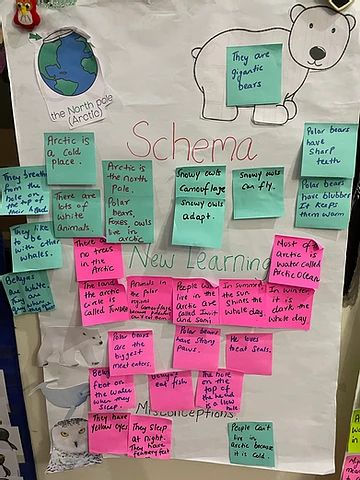 the North pole
(Arctic)
They are
gigantic
bears
Schema
Arctic is
a cold
place.
There are
lots of
white
animals.
They breath
from the
hole on
the top of
their head.
They like
to be
other
whales.
Belugas
are white.
They are
Arctic is
the north
Pole.
Polar
bears,
Foxes, owls
live in
arctic
Snowy owls
Camouflage
Snowy owls
adapt.
Snowy owls
can fly.
Polar bears
have
sharp
teeth
Polar bears
have blubber
It keeps
them worm
New Learning
There are
no trees
in the
Arctic
The land
the arctic
circle is
called Tundra
Animals in
the polar
region
camouflage
because
People
live in the
Arctic are
called Inuit
and Sami.
In summer
the sun
shines the
whole day.
Most of
arctic is
water called
Arctic Ocean
In winter
it is
dark the
whole day
Polar bears
are the
biggest
meat eaters.
Polar bears
have strong
Paws.
He loves
to eat seals.
float on
the water
when they
sleep.
Belugas
eat fish
The hole on
the top of
the head
is a blow
hole
Misconceptions
They have
yellow eyes
They sleep
at night.
They have
feathery feet
People can't
live in
arctic because
it is cold.